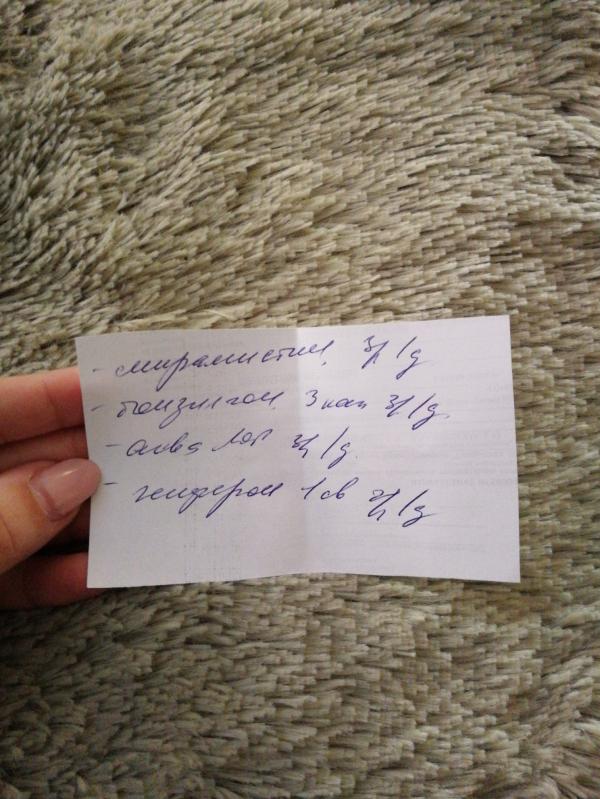 - мирамистин 3р/д
- тонзилгон 3 кап 3р/д.
- аква лор 3р/д.
- генферон 1 св 2р/д